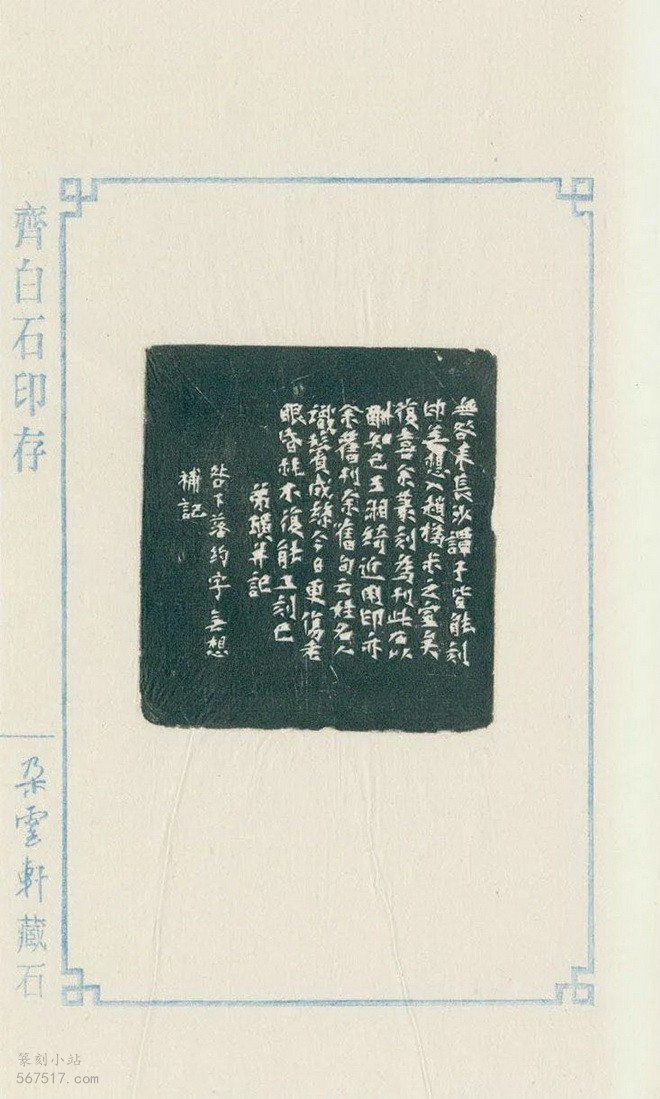 無咎長沙譚子皆能刻
印並想入趙撝叔之室矣
復喜余篆刻為刊此石以
酬知己王湘綺近用印亦
余舊刊余舊句云姓名人
識鬢成絲今日更傷老
眼昏耗不復能工刻也
弟璜并記
咎下落約字無想
補記
齊白石印存
朵雲軒藏石
篆刻小站
567517.com